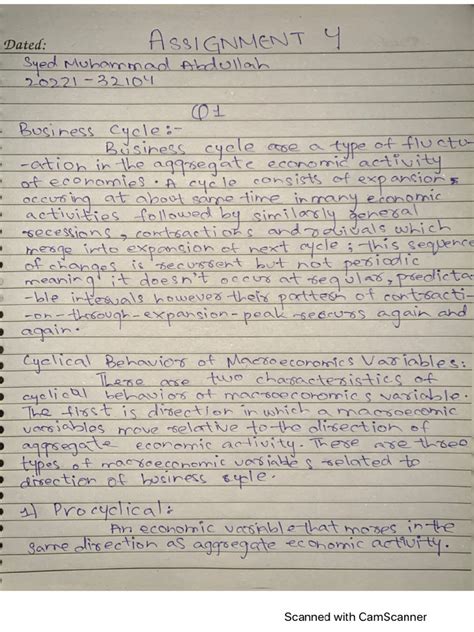 Dated:
ASSIGNMENT 4
Syed Muhammad Abdullah
20221-32104
Q1
Business Cycle :-
Business cycle are a type of fluctu-
-ation in the aggregate economic activity
of economies. A cycle consists of expansions
occuring at about same time in many economic
activities followed by similarly general
recessions, contractions and revivals which
merge into expansion of next cycle ; this sequence
of changes is recurrent but not periodic
meaning it doesn't occur at regular, predicta-
-ble intervals however their pattern of contracti-
-on-through-expansion-peak reocurs again and
again.
Cyclical Behavior of Macroeconomics Variables:
There are two characteristics of
cyclical behavior of macroeconomics variable.
The first is direction in which a macroecomic
variables move relative to the direction of
aggregate economic activity. There are three
types of macroeconomic variables related to
direction of business cycle.
1) Procyclical:
An economic variable that moves in the
same direction as aggregate economic activity.
Scanned with CamScanner